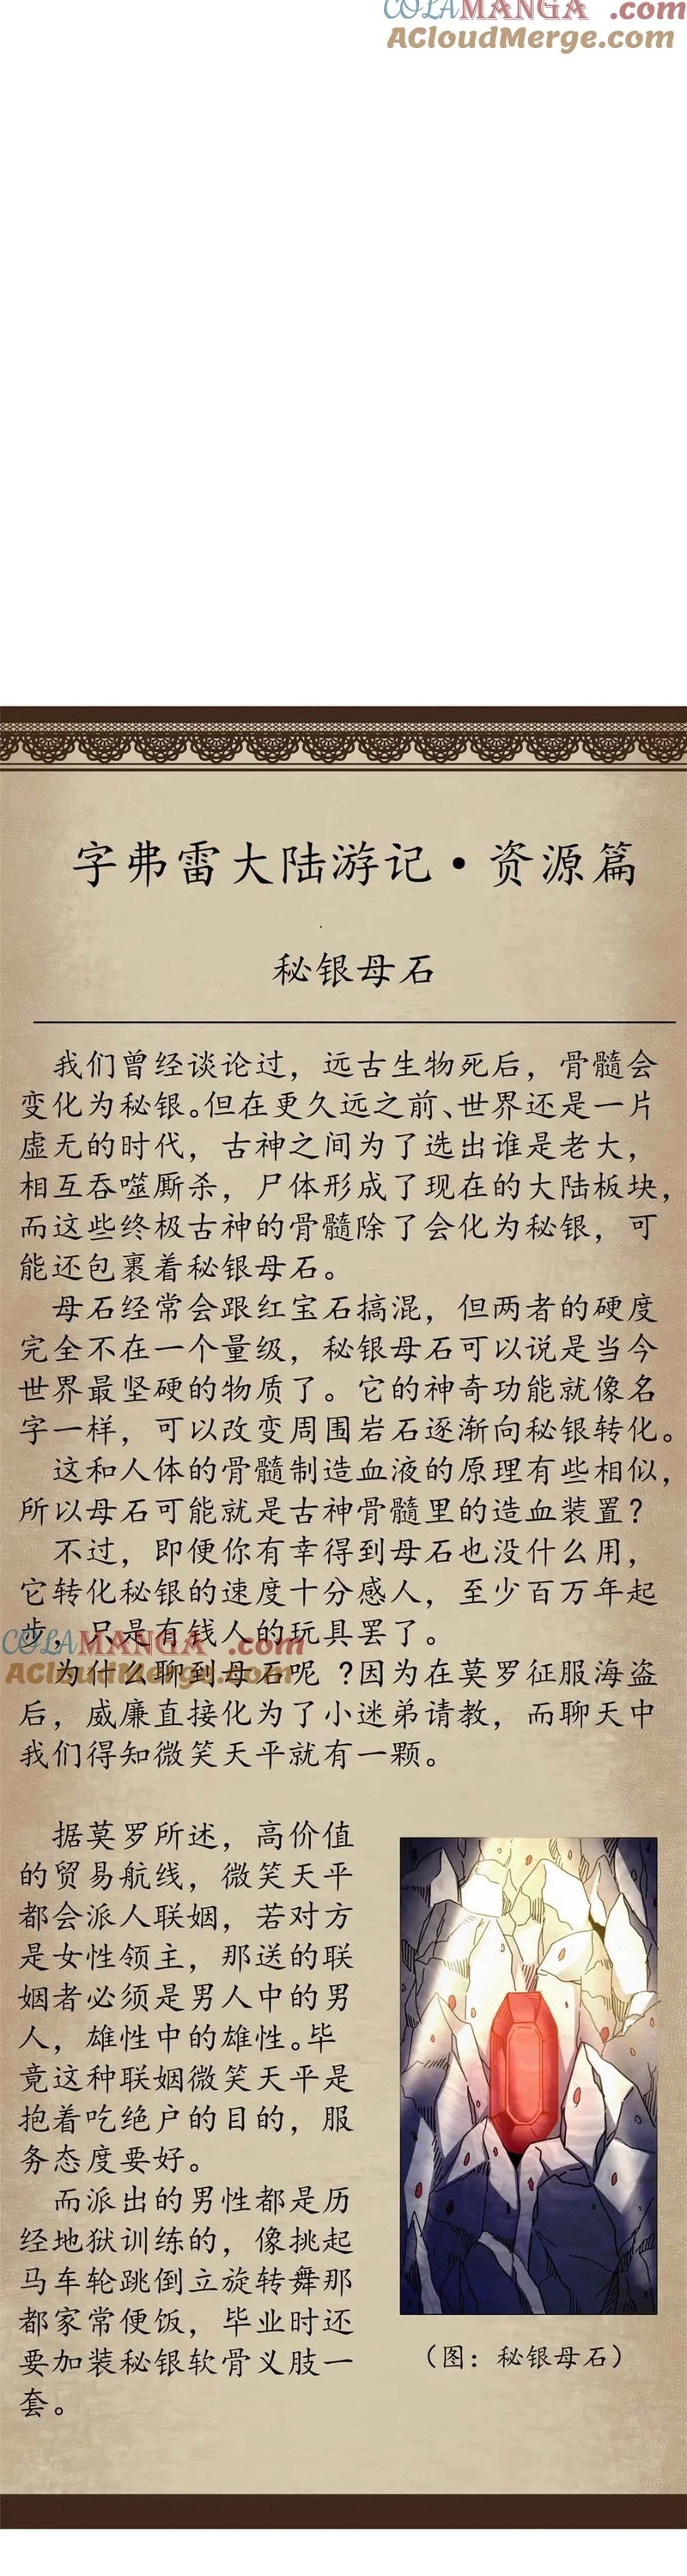 COLAMANGA.com
ACloudMerge.com
字弗雷大陆游记·资源篇
秘银母石
我们曾经谈论过，远古生物死后，骨髓会
变化为秘银。但在更久远之前、世界还是一片
虚无的时代，古神之间为了选出谁是老大，
相互吞噬厮杀，尸体形成了现在的大陆板块，
而这些终极古神的骨髓除了会化为秘银，可
能还包裹着秘银母石。
母石经常会跟红宝石搞混，但两者的硬度
完全不在一个量级，秘银母石可以说是当今
世界最坚硬的物质了。它的神奇功能就像名
字一样，可以改变周围岩石逐渐向秘银转化。
这和人体的骨髓制造血液的原理有些相似，
所以母石可能就是古神骨髓里的造血装置？
不过，即便你有幸得到母石也没什么用，
它转化秘银的速度十分感人，至少百万年起
步，只是有钱人的玩具罢了。
COLAMANGA.com
ACloudMerge.com
为什么聊到母石呢 ?因为在莫罗征服海盗
后，威廉直接化为了小迷弟请教，而聊天中
我们得知微笑天平就有一颗。
据莫罗所述，高价值
的贸易航线，微笑天平
都会派人联姻，若对方
是女性领主，那送的联
姻者必须是男人中的男
人，雄性中的雄性。毕
竟这种联姻微笑天平是
抱着吃绝户的目的，服
务态度要好。
而派出的男性都是历
经地狱训练的，像挑起
马车轮跳倒立旋转舞那
都家常便饭，毕业时还
要加装秘银软骨义肢一
套。
（图：秘银母石）